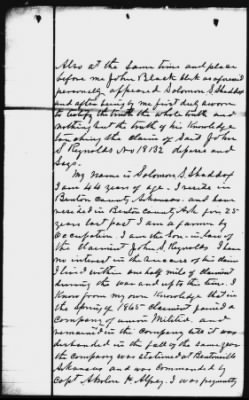 Also at the same time and place
before me John Black Clerk as aforesaid
personally appeared Solomon S. Shaddox
and after being by me first duly sworn
to testify the truth the whole truth and
nothing but the truth of his Knowledge
touching the claim of said John
S Reynolds No 18132 deposes and
says.
My name is Solomon S. Shaddox
I am 44 years of age. I reside in
Benton County Arkansas. and have
resided in Benton County Ark for 25
years last past I am a farmer by
occupation I am the Son in law of
the claimant John S. Reynolds I have
no interest in the success of his claim
I lived within one half mile of claimant
during the war and up to this time. I
Know from my own Knowledge that in
the Spring of 1865 claimant joined a
Company of union Militia. and
remained in the Company till it was
disbanded in the fall of the same year
the Company was stationed at Bentonville
Arkansas and was commanded by
Capt H. Alfrey. I was frequently